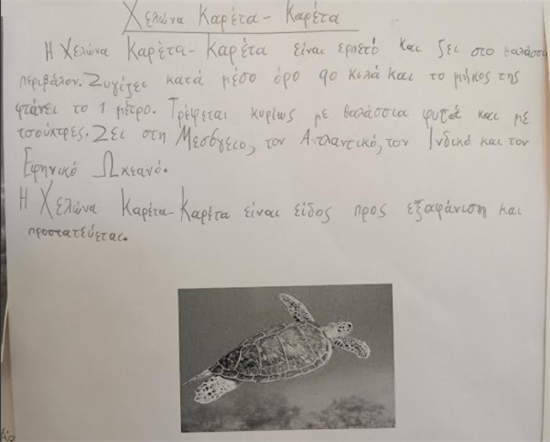 Χελώνα Καρέτα-Καρέτα
Η Χελώνα Καρέτα-Καρέτα είναι ερπετό και ζει στο θαλάσσι
περιβάλον. Ζυγίζει κατά μέσο όρο 90 κιλά και το μήκος της
φτάνει το 1 μέτρο. Τρέφεται κυρίως με θαλάσσια φυτά και με
τσούχτρες. Ζει στη Μεσόγειο, τον Ατλαντικό, τον Ινδικό και τον
Ειρηνικό Ωκεανό.
Η Χελώνα Καρέτα-Καρέτα είναι είδος προς εξαφάνιση και
προστατεύεται.